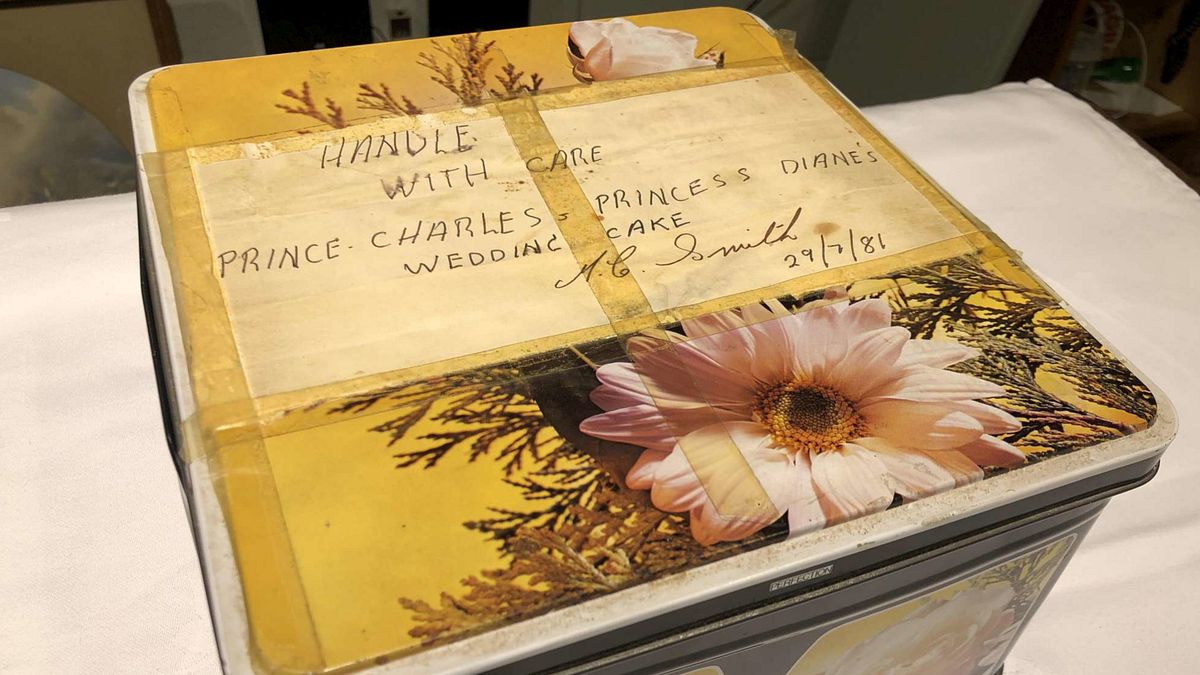 HANDLE
WITH CARE
PRINCE. CHARLES & PRINCESS DIANE'S
WEDDING CAKE
M.C. Smith
29/7/81
PERFECTION